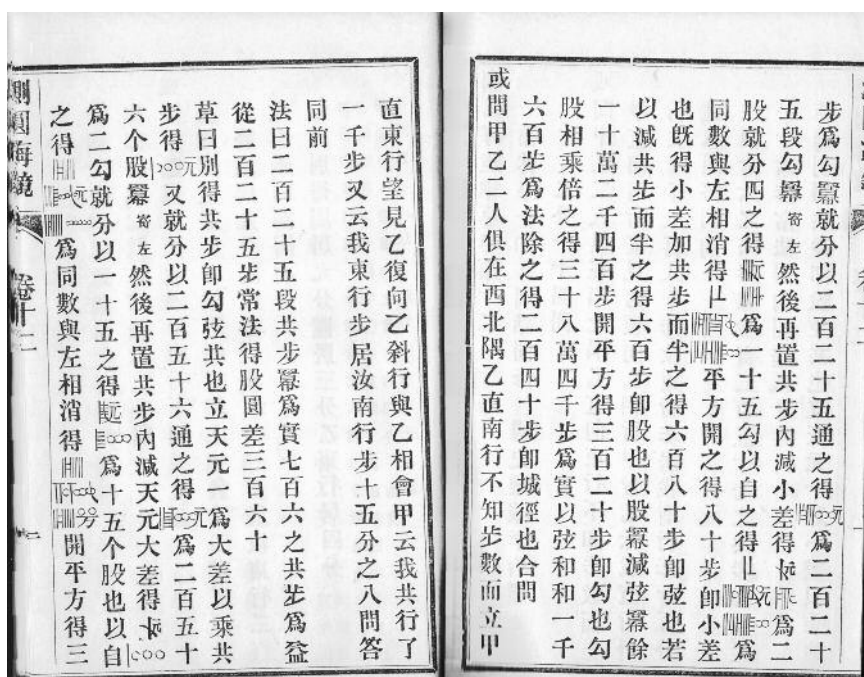 步爲勾羃就分以二百二十五通之得元爲二百二十
五段勾羃寄左然後再置共步內減小差得爲二
股就分四之得元爲一十五勾以自之得元爲
同數與左相消得平方開之得八十步卽小差
也旣得小差加共步而半之得六百八十步卽弦也若
以減共步而半之得六百步卽股也以股羃減弦羃餘
一十萬二千四百步開平方得三百二十步卽勾也勾
股相乘倍之得三十八萬四千步爲實以弦和和一千
六百步爲法除之得二百四十步卽城徑也合問
或問甲乙二人俱在西北隅乙直南行不知步數而立甲
直東行望見乙復向乙斜行與乙相會甲云我共行了
一千步又云我東行步居汝南行步十五分之八問答
同前
法曰二百二十五段共步羃爲實七百六之共步爲益
從二百二十五步常法得股圓差三百六十
草曰別得共步卽勾弦共也立天元爲大差以乘共
步得元又就分以二百五十六通之得元爲二百五十
六个股羃寄左然後再置共步內減天元大差得
爲二勾就分以一十五之得元爲十五个股也以自
之得元爲同數與左相消得開平方得三
測圓海鏡
卷十二